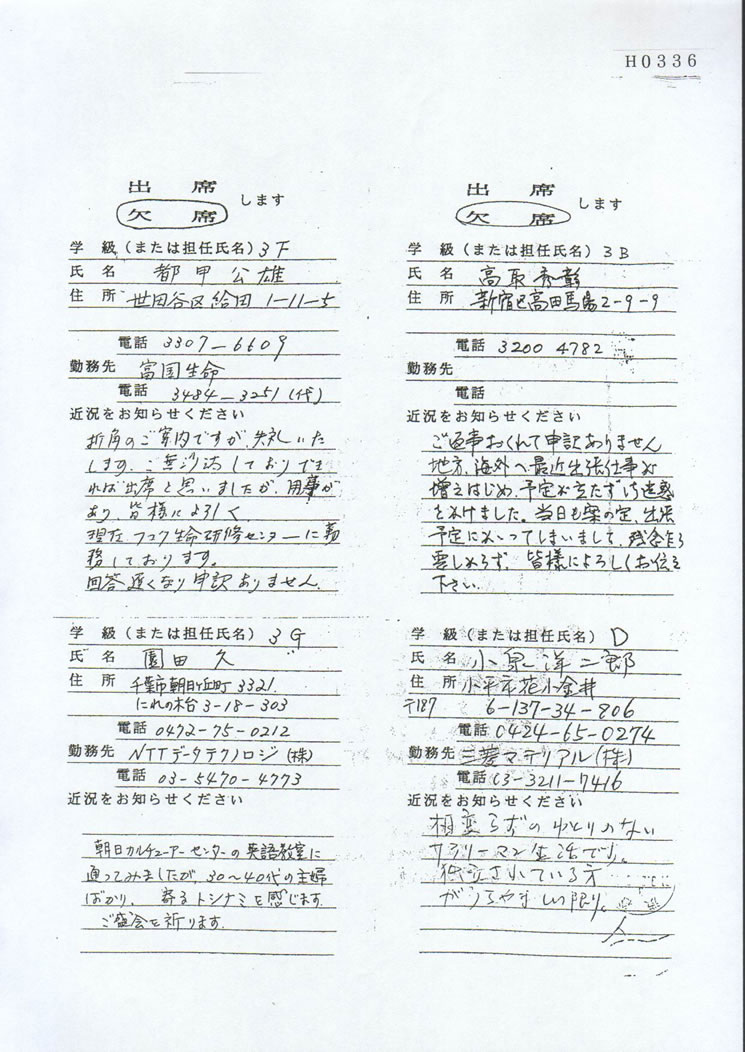 H0336
出席
欠席
します
学級（または担任氏名）3F
氏名 都甲公雄
住所 世田谷区給田 1-11-5
電話 3307-6609
勤務先 富国生命
電話 3484-3251(代)
近況をお知らせください
折角のご案内ですが、失礼いた
します。ご無沙汰しておりでき
れば出席と思いましたが、用事が
あり、皆様によろしく
現在フコク生命研修センターに勤
務しております。
回答遅くなり申訳ありません。
出席
欠席
します
学級（または担任氏名）3B
氏名 高取秀彰
住所 新宿区高田馬場2-9-9
電話 3200 4782
勤務先
電話
近況をお知らせください
ご返事おくれて申訳ありません
地方、海外へ最近出張仕事が
増えはじめ、予定が立たずご迷惑
をかけました。当日も案の定、出張
予定に入ってしまいまして、残念乍ら
要しめらず、皆様によろしくお伝え
下さい。
学級（または担任氏名）3G
氏名 園田久
住所 千葉市朝日ヶ丘町 3321
にれの木台 3-18-303
電話 0472-75-0212
勤務先 NTTデータテクノロジ(株)
電話 03-5470-4773
近況をお知らせください
朝日カルチュアーセンターの英語教室に
通ってみましたが 30〜40代の主婦
ばかり。寄るトシナミを感じます。
ご盛会を祈ります。
学級（または担任氏名）D
氏名 小泉洋二郎
住所 小平市花小金井
〒187 6-137-34-806
電話 0424-65-0274
勤務先 三菱マテリアル(株)
電話 03-3211-7416
近況をお知らせください
相変らずのゆとりのない
サラリーマン生活です。
独立されている方
がうらやましい限り。